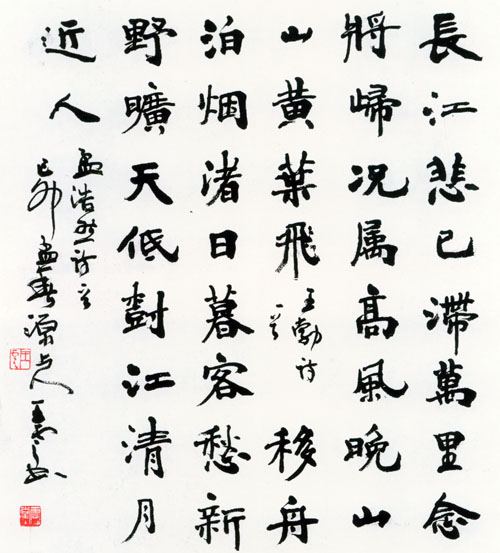 長江悲已滯萬里念
將歸况属高風晚山
山黃葉飛
王勃诗
一首
移舟
泊烟渚日暮客愁新
野曠天低尌江清月
近人
孟浩然诗一首
己卯孟春源上人